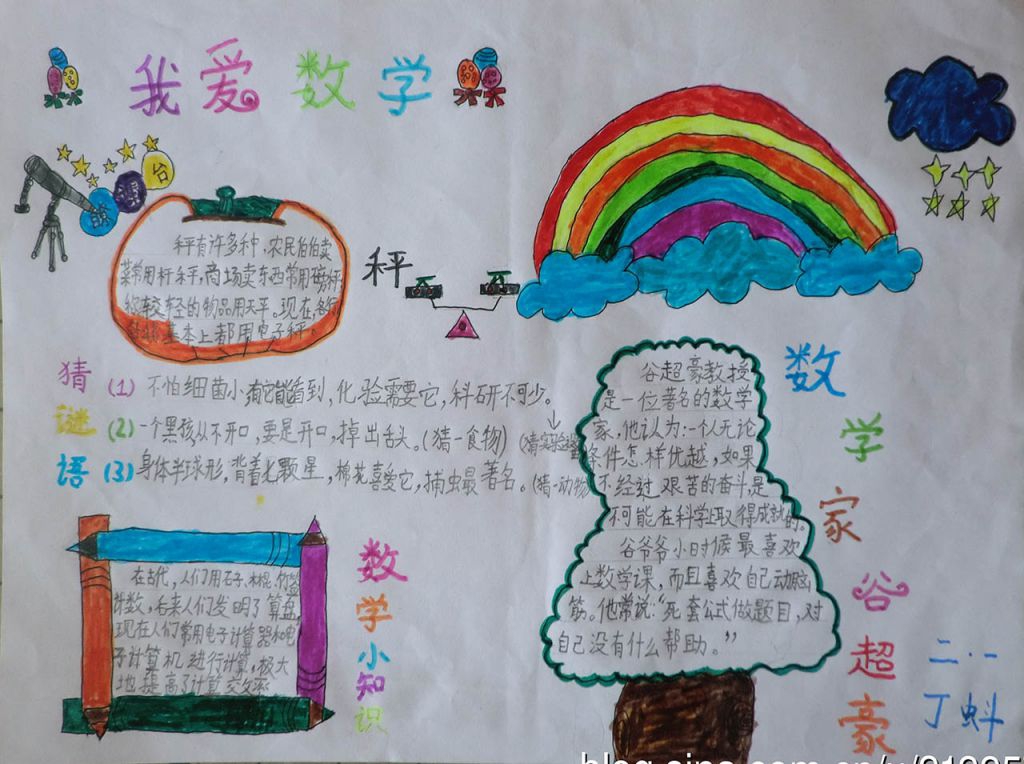 我爱数学
台
秤有许多种,农民伯伯卖
菜常用杆秤,商场卖东西常用磅秤
称较轻的物品用天平。现在,各行
各业基本上都用电子秤。
秤
猜谜语
(1) 不怕细菌小,有它能看到,化验需要它,科研不可少。
(猜实验器
(2) 一个黑孩从不开口,要是开口,掉出舌头。(猜一食物)
(3) 身体半球形,背着七颗星,棉花喜爱它,捕虫最著名。(猜一动物
在古代,人们用石子、木棍、竹签
计数,后来人们发明了算盘,
现在人们常用电子计算器和电
子计算机进行计算,极大
地提高了计算
数学小知识
谷超豪教授
是一位著名的数学
家,他认为:一个人无论
条件怎样优越,如果
不经过艰苦的奋斗是
不可能在科学上取得成就的。
谷爷爷小时候最喜欢
上数学课,而且喜欢自己动脑
筋。他常说:“死套公式做题目,对
自己没有什么帮助。”
数学家谷超豪
二·一
丁蚪